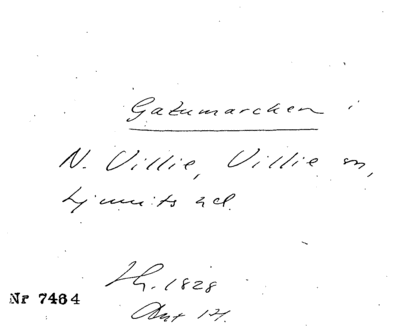 Gatumarcken i
N. Villie, Villie sn,
Ljunits hd.
1828
Nr 7464